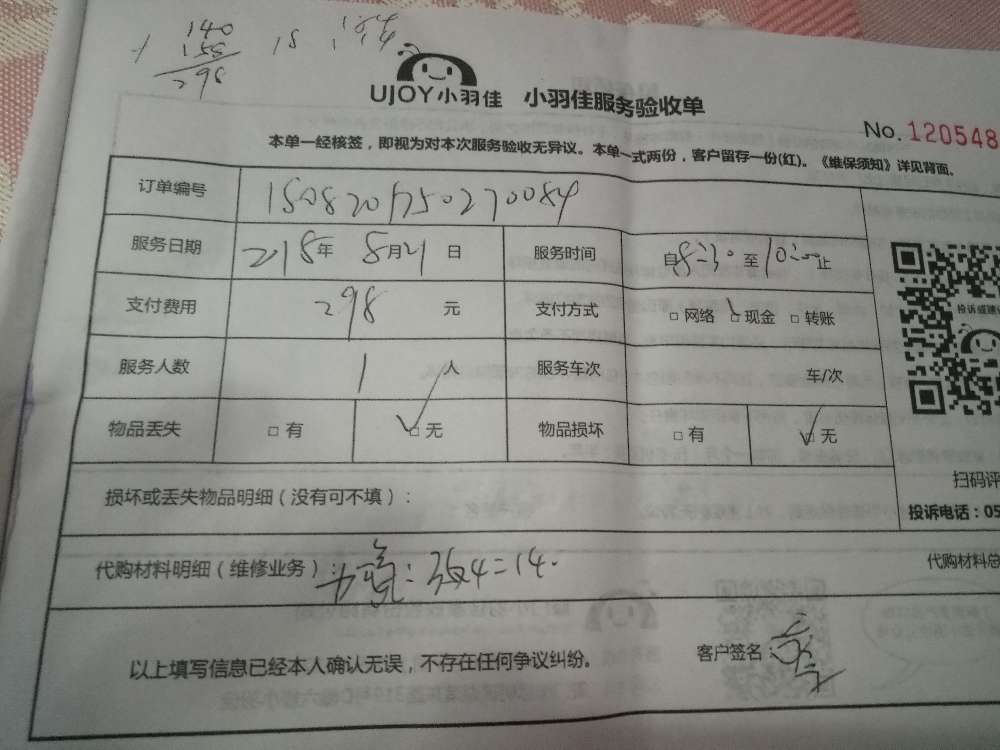 140
155
298
UJOY小羽佳 小羽佳服务验收单
No. 120548
本单一经核签，即视为对本次服务验收无异议。本单一式两份，客户留存一份(红)。《维保须知》详见背面。
订单编号 1508201750270084
服务日期 218年 8月21日 服务时间 自8:30至10:00止
支付费用 298 元 支付方式 □网络 □现金 □转账
投诉或建议
服务人数 1 人 服务车次 车/次
物品丢失 □有 □无 物品损坏 □有 □无
扫码评
损坏或丢失物品明细（没有可不填）：
投诉电话：05
代购材料明细（维修业务）： =14.
代购材料总
以上填写信息已经本人确认无误，不存在任何争议纠纷。
客户签名：